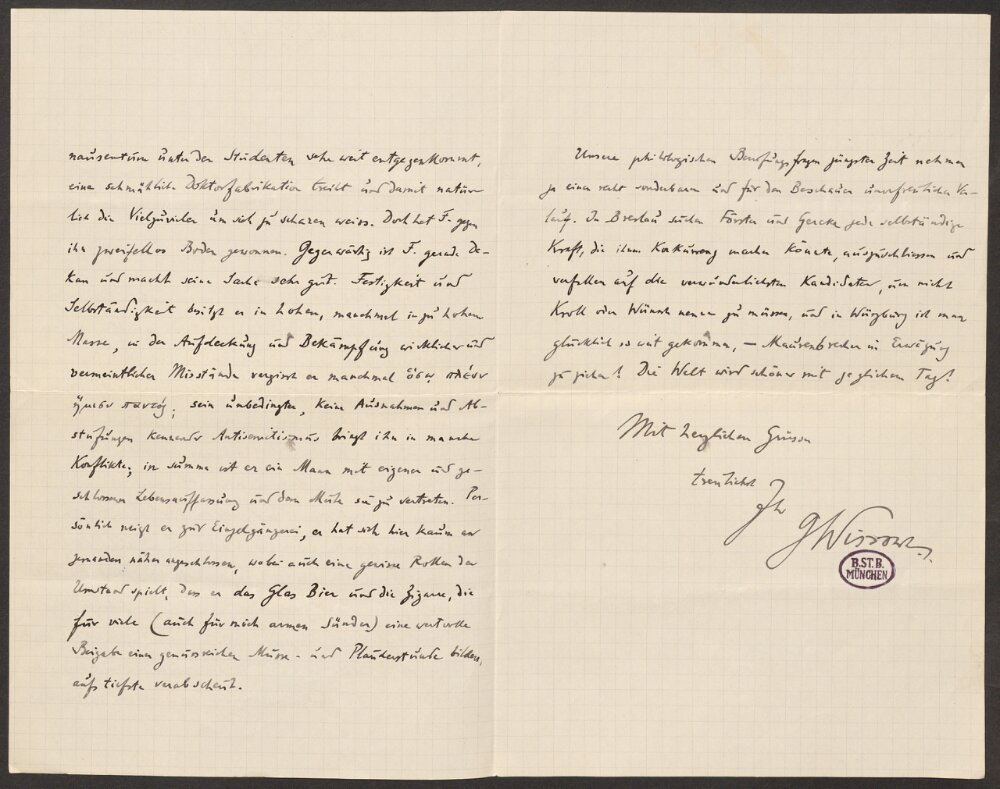 nausentum unter den Studenten sehr weit entgegenkommt,
eine schmähliche Doktorfabrikation treibt und damit natür-
lich die Vielzuvielen um sich zu scharen weiss. Doch hat F. gegen
ihn zweifellos Boden gewonnen. Gegenwärtig ist F. gerade De-
kan und macht seine Sache sehr gut. Festigkeit und
Selbständigkeit besitzt er in hohem, manchmal in zu hohem
Masse, in der Aufdeckung und Bekämpfung wirklicher und
vermeintlicher Misstände vergisst er manchmal ὅσῳ πλέον
ἥμισυ παντός; sein unbedingter, keine Ausnahmen und Ab-
stufungen kennender Antisemitismus bringt ihn in manche
Konflikte; in summa ist er ein Mann mit eigener und ge-
schlossener Lebensauffassung und dem Mute sie zu vertreten. Per-
sönlich neigt er zur Eingängerei, er hat sich hier kaum an
jemanden näher angeschlossen, wobei auch eine gewisse Rolle der
Umstand spielt, dass er das Glas Bier und die Zigarre, die
für viele (auch für mich armen Sünder) eine wertvolle
Beigabe einer genussreichen Musse- und Plauderstunde bilden,
aufs tiefste verabscheut.
Unsere philologischen Berufungsfragen jüngster Zeit nehmen
ja einen recht sonderbaren und für den Beschauer unerfreulichen Ver-
lauf. In Breslau suchen Förster und Gercke jede selbständige
Kraft, die ihnen Konkurrenz machen könnte, auszuschliessen und
verfallen auf die verwunderlichsten Kandidaten, um nicht
Kroll oder Wünsch nennen zu müssen, und in Würzburg ist man
glücklich so weit gekommen, — Maurenbrecher in Erwägung
zu ziehen! Die Welt wird schöner mit jeglichem Tag!
Mit herzlichen Grüssen
treulichst
Ihr
GWissowa.
B.ST.B.
MÜNCHEN